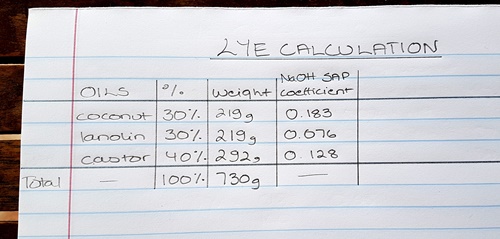 LYE CALCULATION
OILS % Weight NaOH SAP coefficient
coconut 30% 219g 0.183
lanolin 30% 219g 0.076
castor 40% 292g 0.128
Total — 100% 730g —